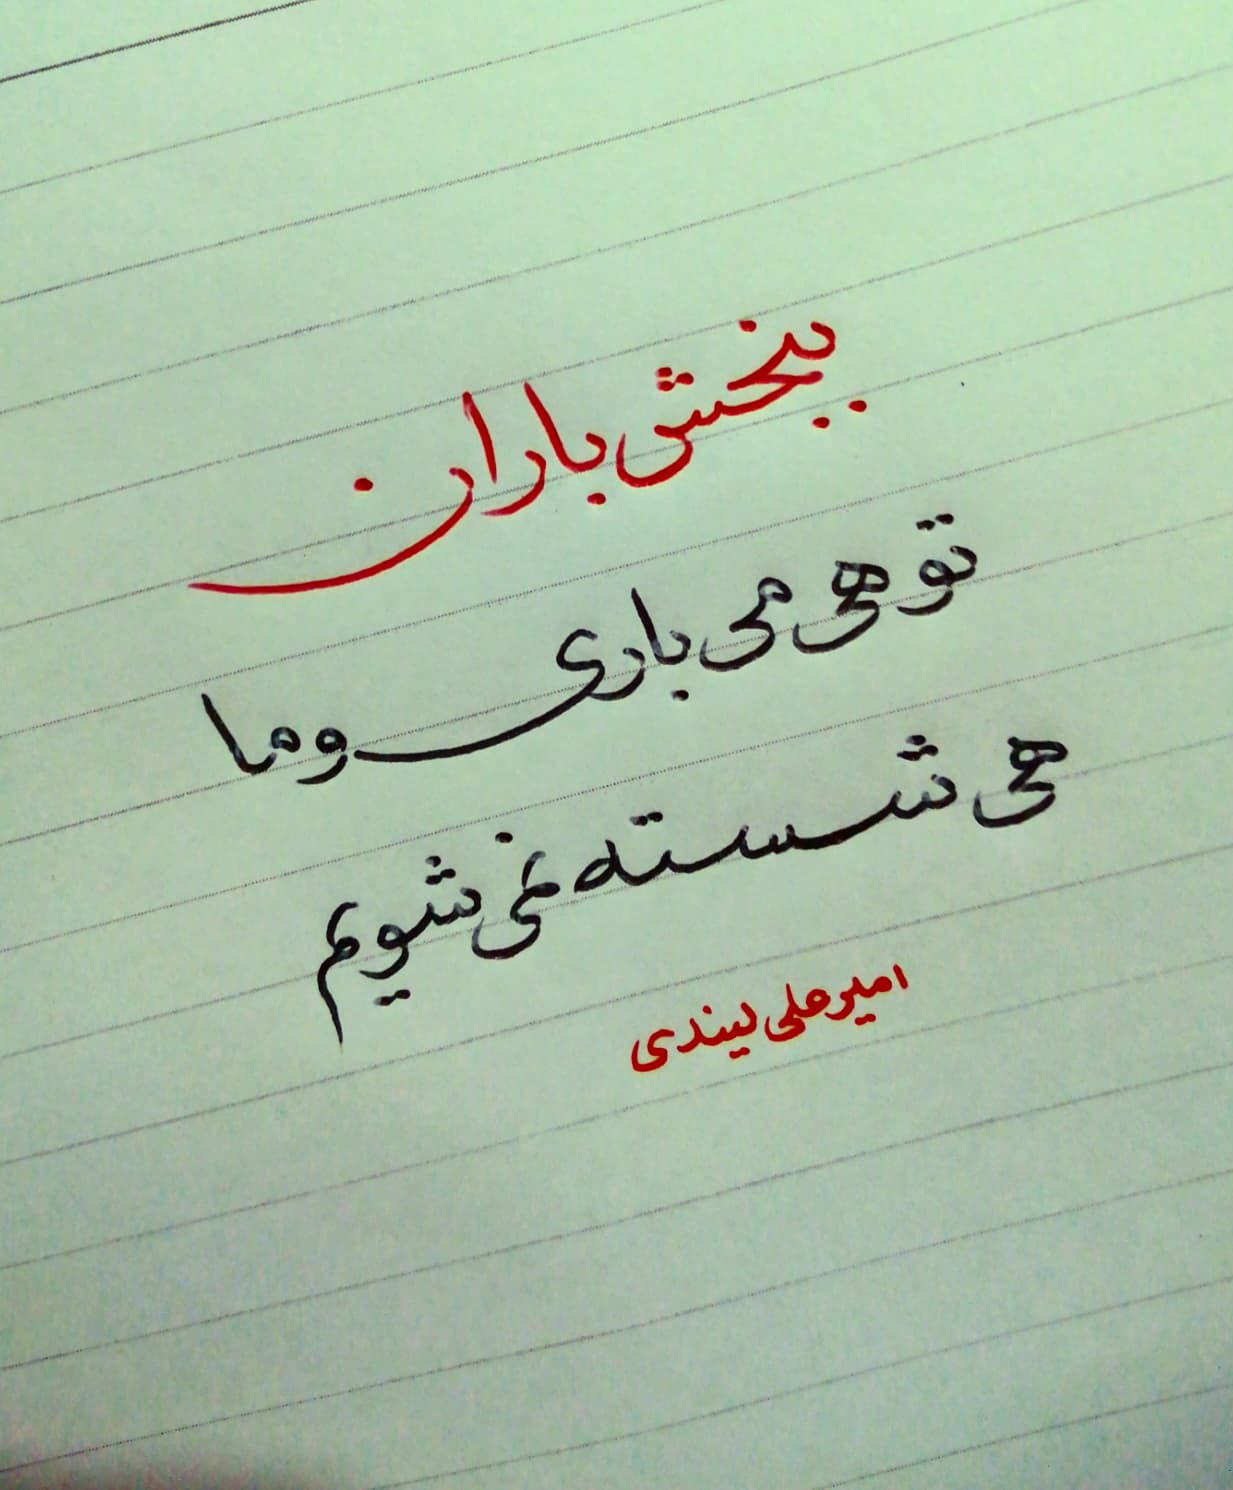 ببخش باران
تو هی می باری و ما
هی شسته نمی شویم
امیرعلی لیندی